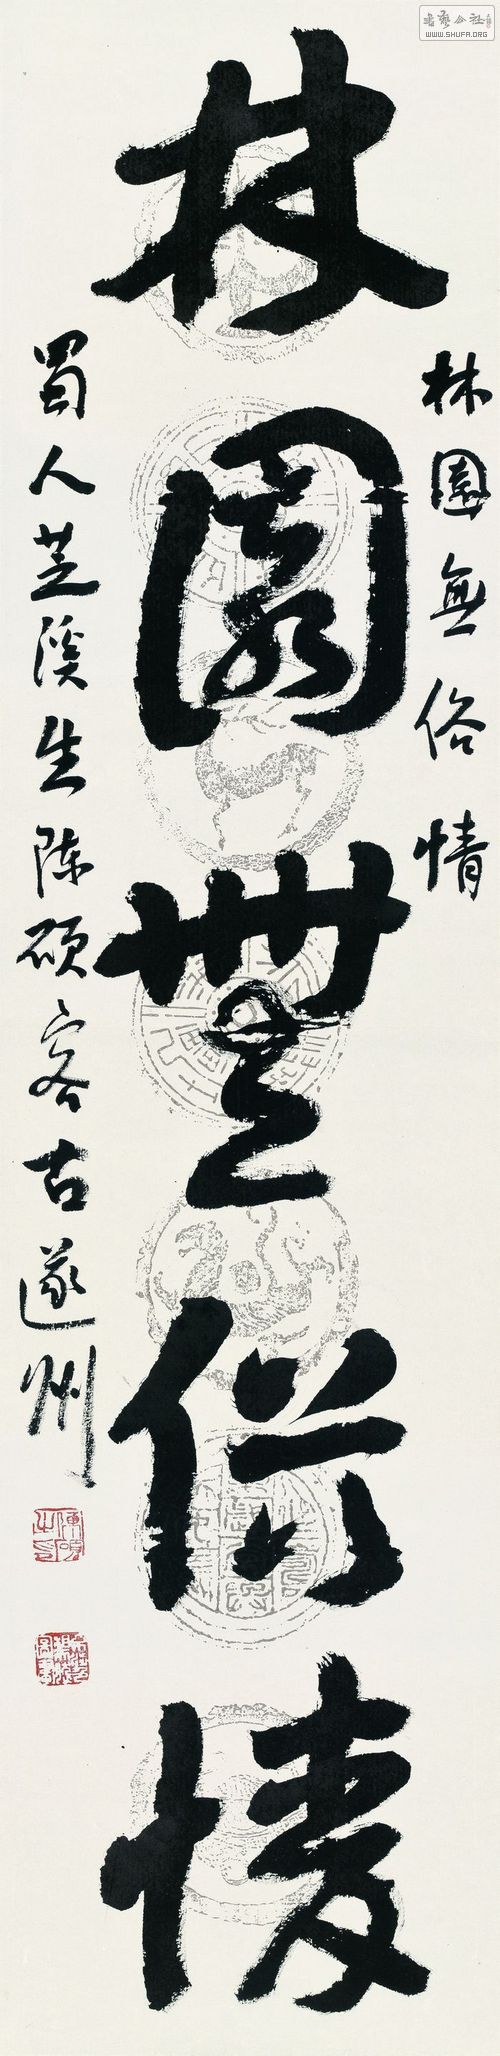 書藝公社
WWW.SHUFA.ORG
林園無俗情
林園無俗情
蜀人芝溪生陈硕客古遂州